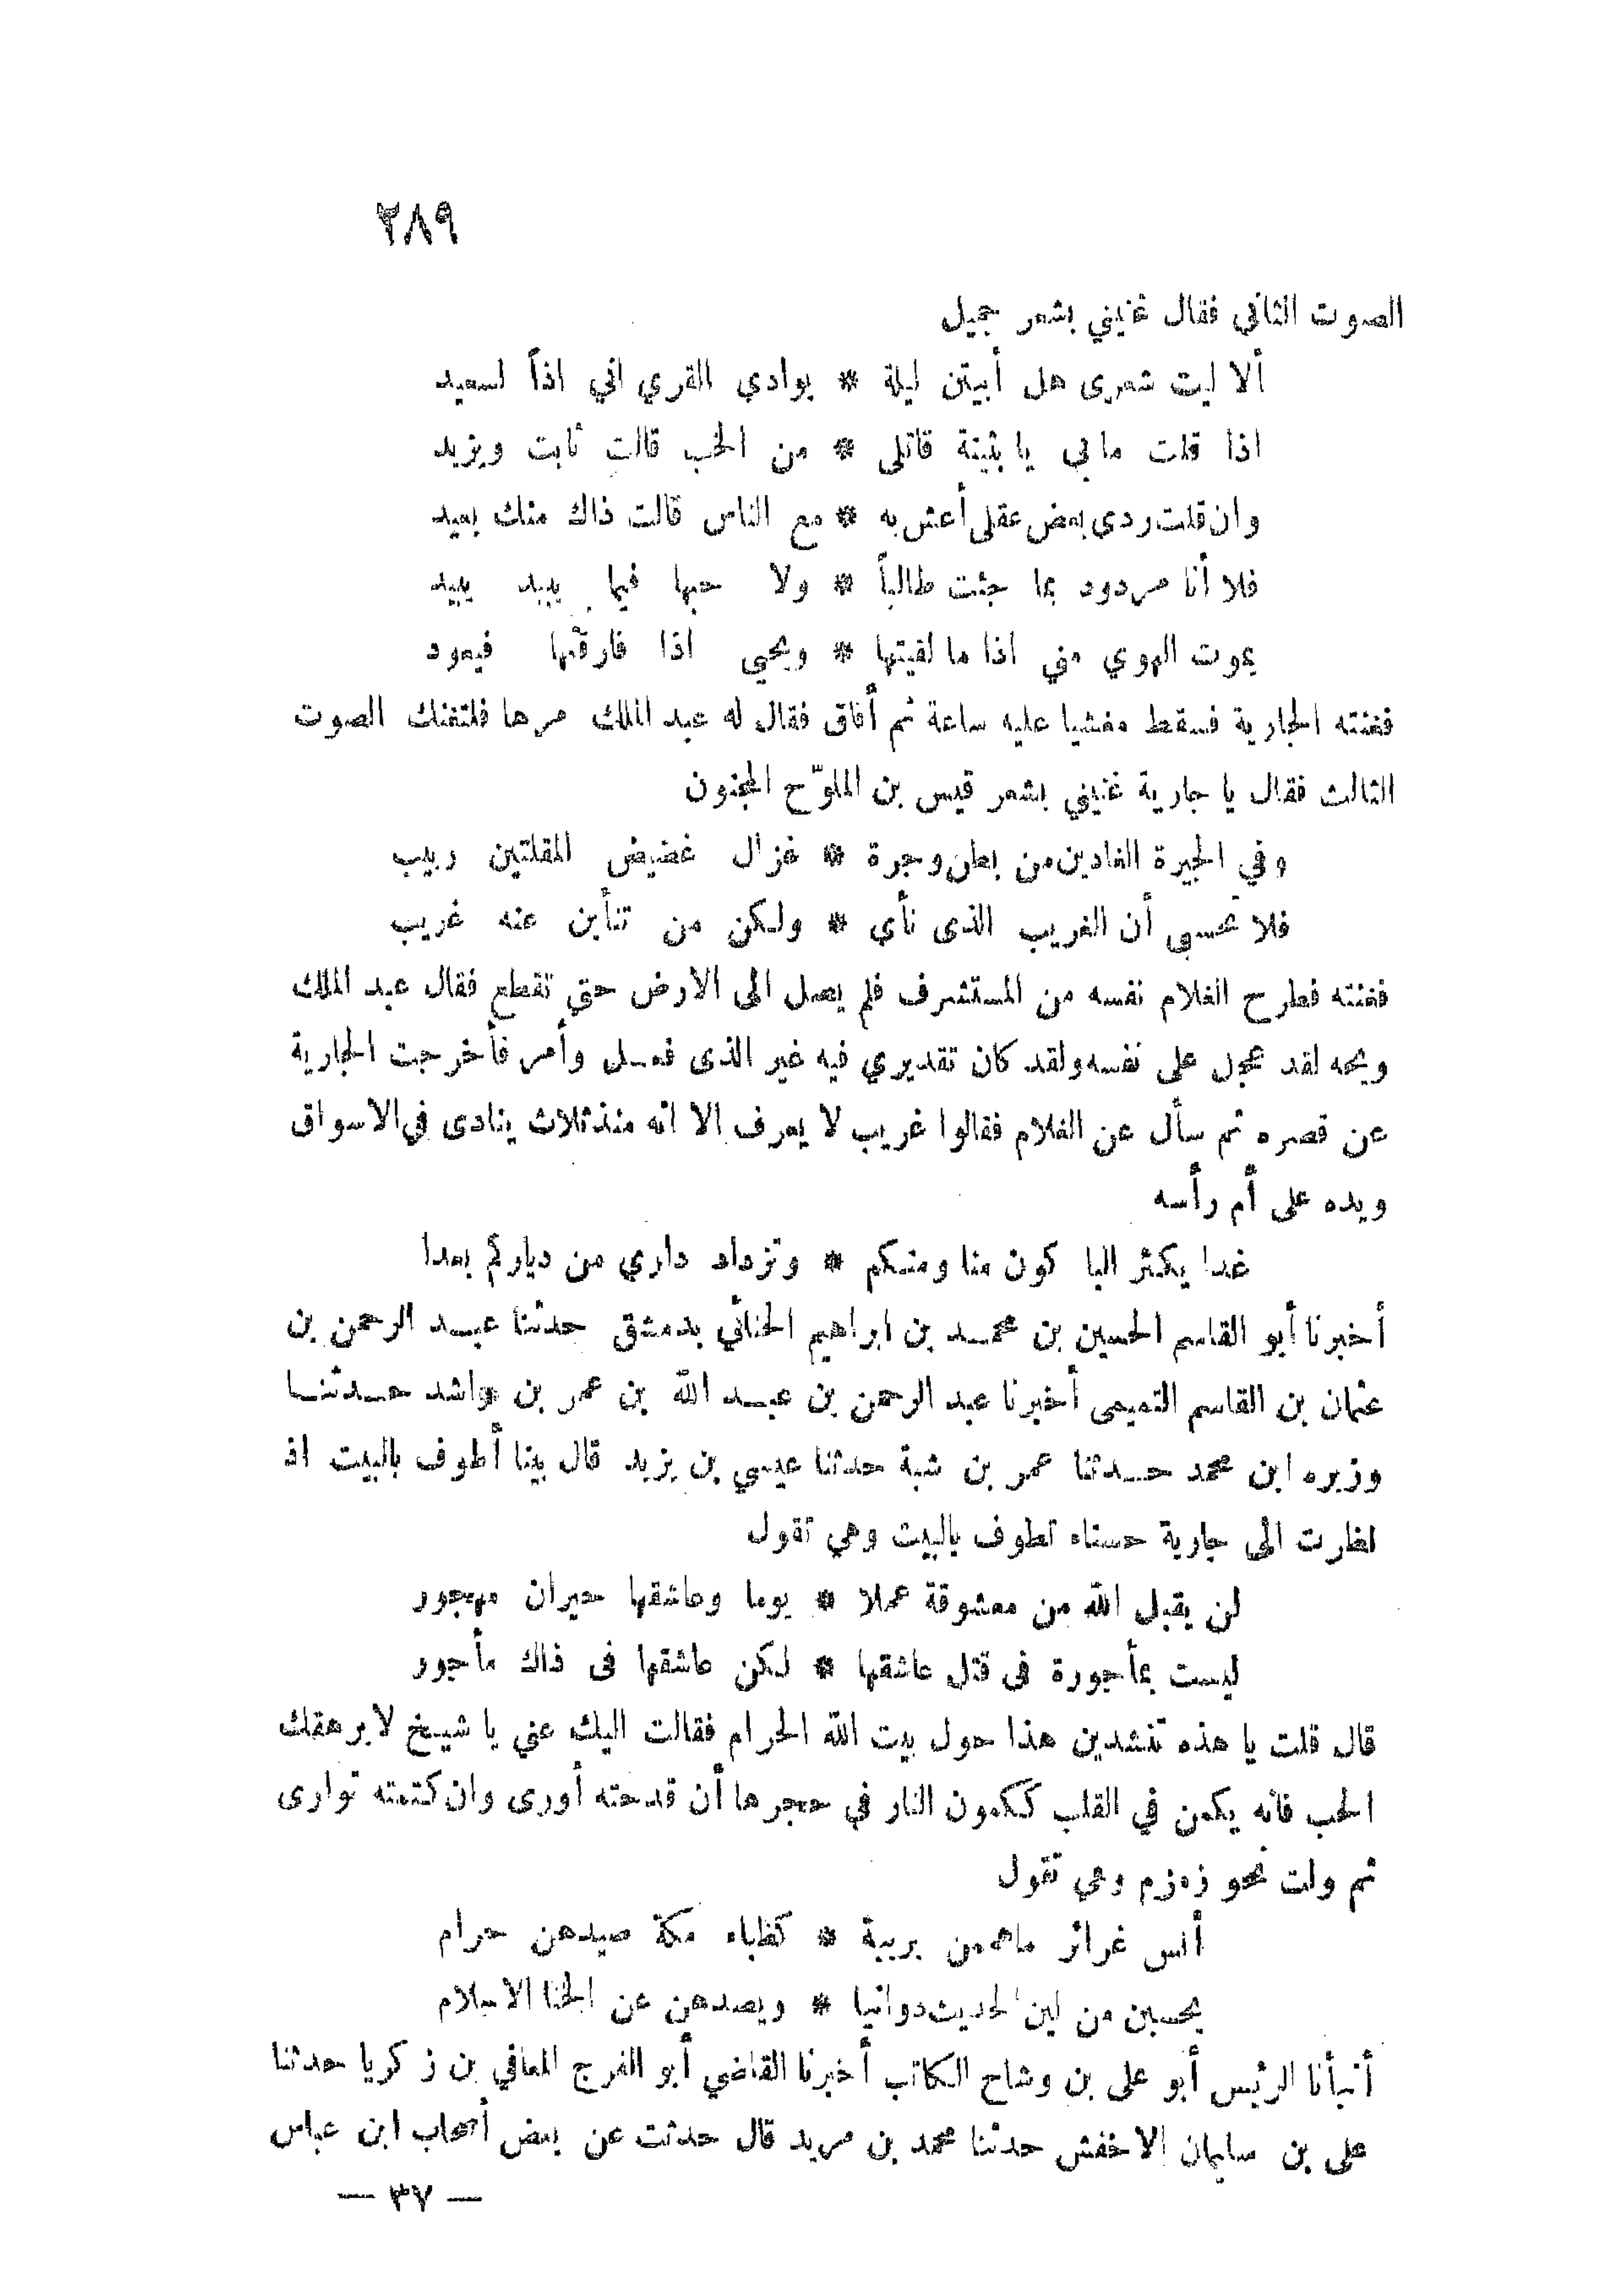 ٢٨٩
الصوت الثاني فقال غنيني بشعر جميل
ألا ليت شعرى هل أبيتن ليلة * بوادي القري اني اذاً لسعيد
اذا قلت مابي يا بثينة قاتلى * من الحب قالت ثابت ويزيد
وان قلت ردى بعض عقلى أعش به * مع الناس قالت ذاك منك بعيد
فلا أنا مردود بما جئت طالباً * ولا حبها فيما يبيد يبيد
يموت الهوي مني اذا ما لقيتها * ويحيي اذا فارقتها فيعود
فغنته الجارية فسقط مغشيا عليه ساعة ثم أفاق فقال له عبد الملك مرها فلتغنك الصوت
الثالث فقال يا جارية غنيني بشعر قيس بن الملوّح المجنون
وفي الجيرة الغادين من بطن وجرة * غزال غضيض المقلتين ربيب
فلا تحسبي أن الغريب الذى نأي * ولكن من تنأين عنه غريب
فغنته فطرح الغلام نفسه من المستشرف فلم يصل الى الارض حتى تقطع فقال عبد الملك
ويحه لقد عجل على نفسه ولقد كان تقديري فيه غير الذى فعل وأمر فأخرجت الجارية
عن قصره ثم سأل عن الغلام فقالوا غريب لا يعرف الا انه منذ ثلاث ينادى في الاسواق
ويده على أم رأسه
غدا يكثر البا كون منا ومنكم * وتزداد داري من دياركم بعدا
أخبرنا أبو القاسم الحسين بن محمد بن ابراهيم الحنائي بدمشق حدثنا عبد الرحمن بن
عثمان بن القاسم التميمى أخبرنا عبد الرحمن بن عبد الله بن عمر بن راشد حدثنا
وزيره ابن محمد حدثنا عمر بن شبة حدثنا عيسي بن يزيد قال بينا أطوف بالبيت اذ
نظرت الى جارية حسناء تطوف بالبيت وهي تقول
لن يقبل الله من معشوقة عملا * يوما وعاشقها حيران مهجور
ليست بمأجورة فى قتل عاشقها * لكن عاشقها فى ذاك مأجور
قال قلت يا هذه تنشدين هذا حول بيت الله الحرام فقالت اليك عني يا شيخ لا يرهقك
الحب فانه يكمن في القلب ككمون النار في حجرها أن قدحته أورى وان كتمته توارى
ثم ولت نحو زمزم وهي تقول
أنس غرائر ماهممن بريبة * كظباء مكة صيدهن حرام
يحسبن من لين الحديث دوانيا * ويصدهن عن الخنا الاسلام
أنبأنا الرئيس أبو على بن وشاح الكاتب أخبرنا القاضي أبو الفرج المعافي بن زكريا حدثنا
على بن سليمان الاخفش حدثنا محمد بن مريد قال حدثت عن بعض أصحاب ابن عباس
— ٣٧ —